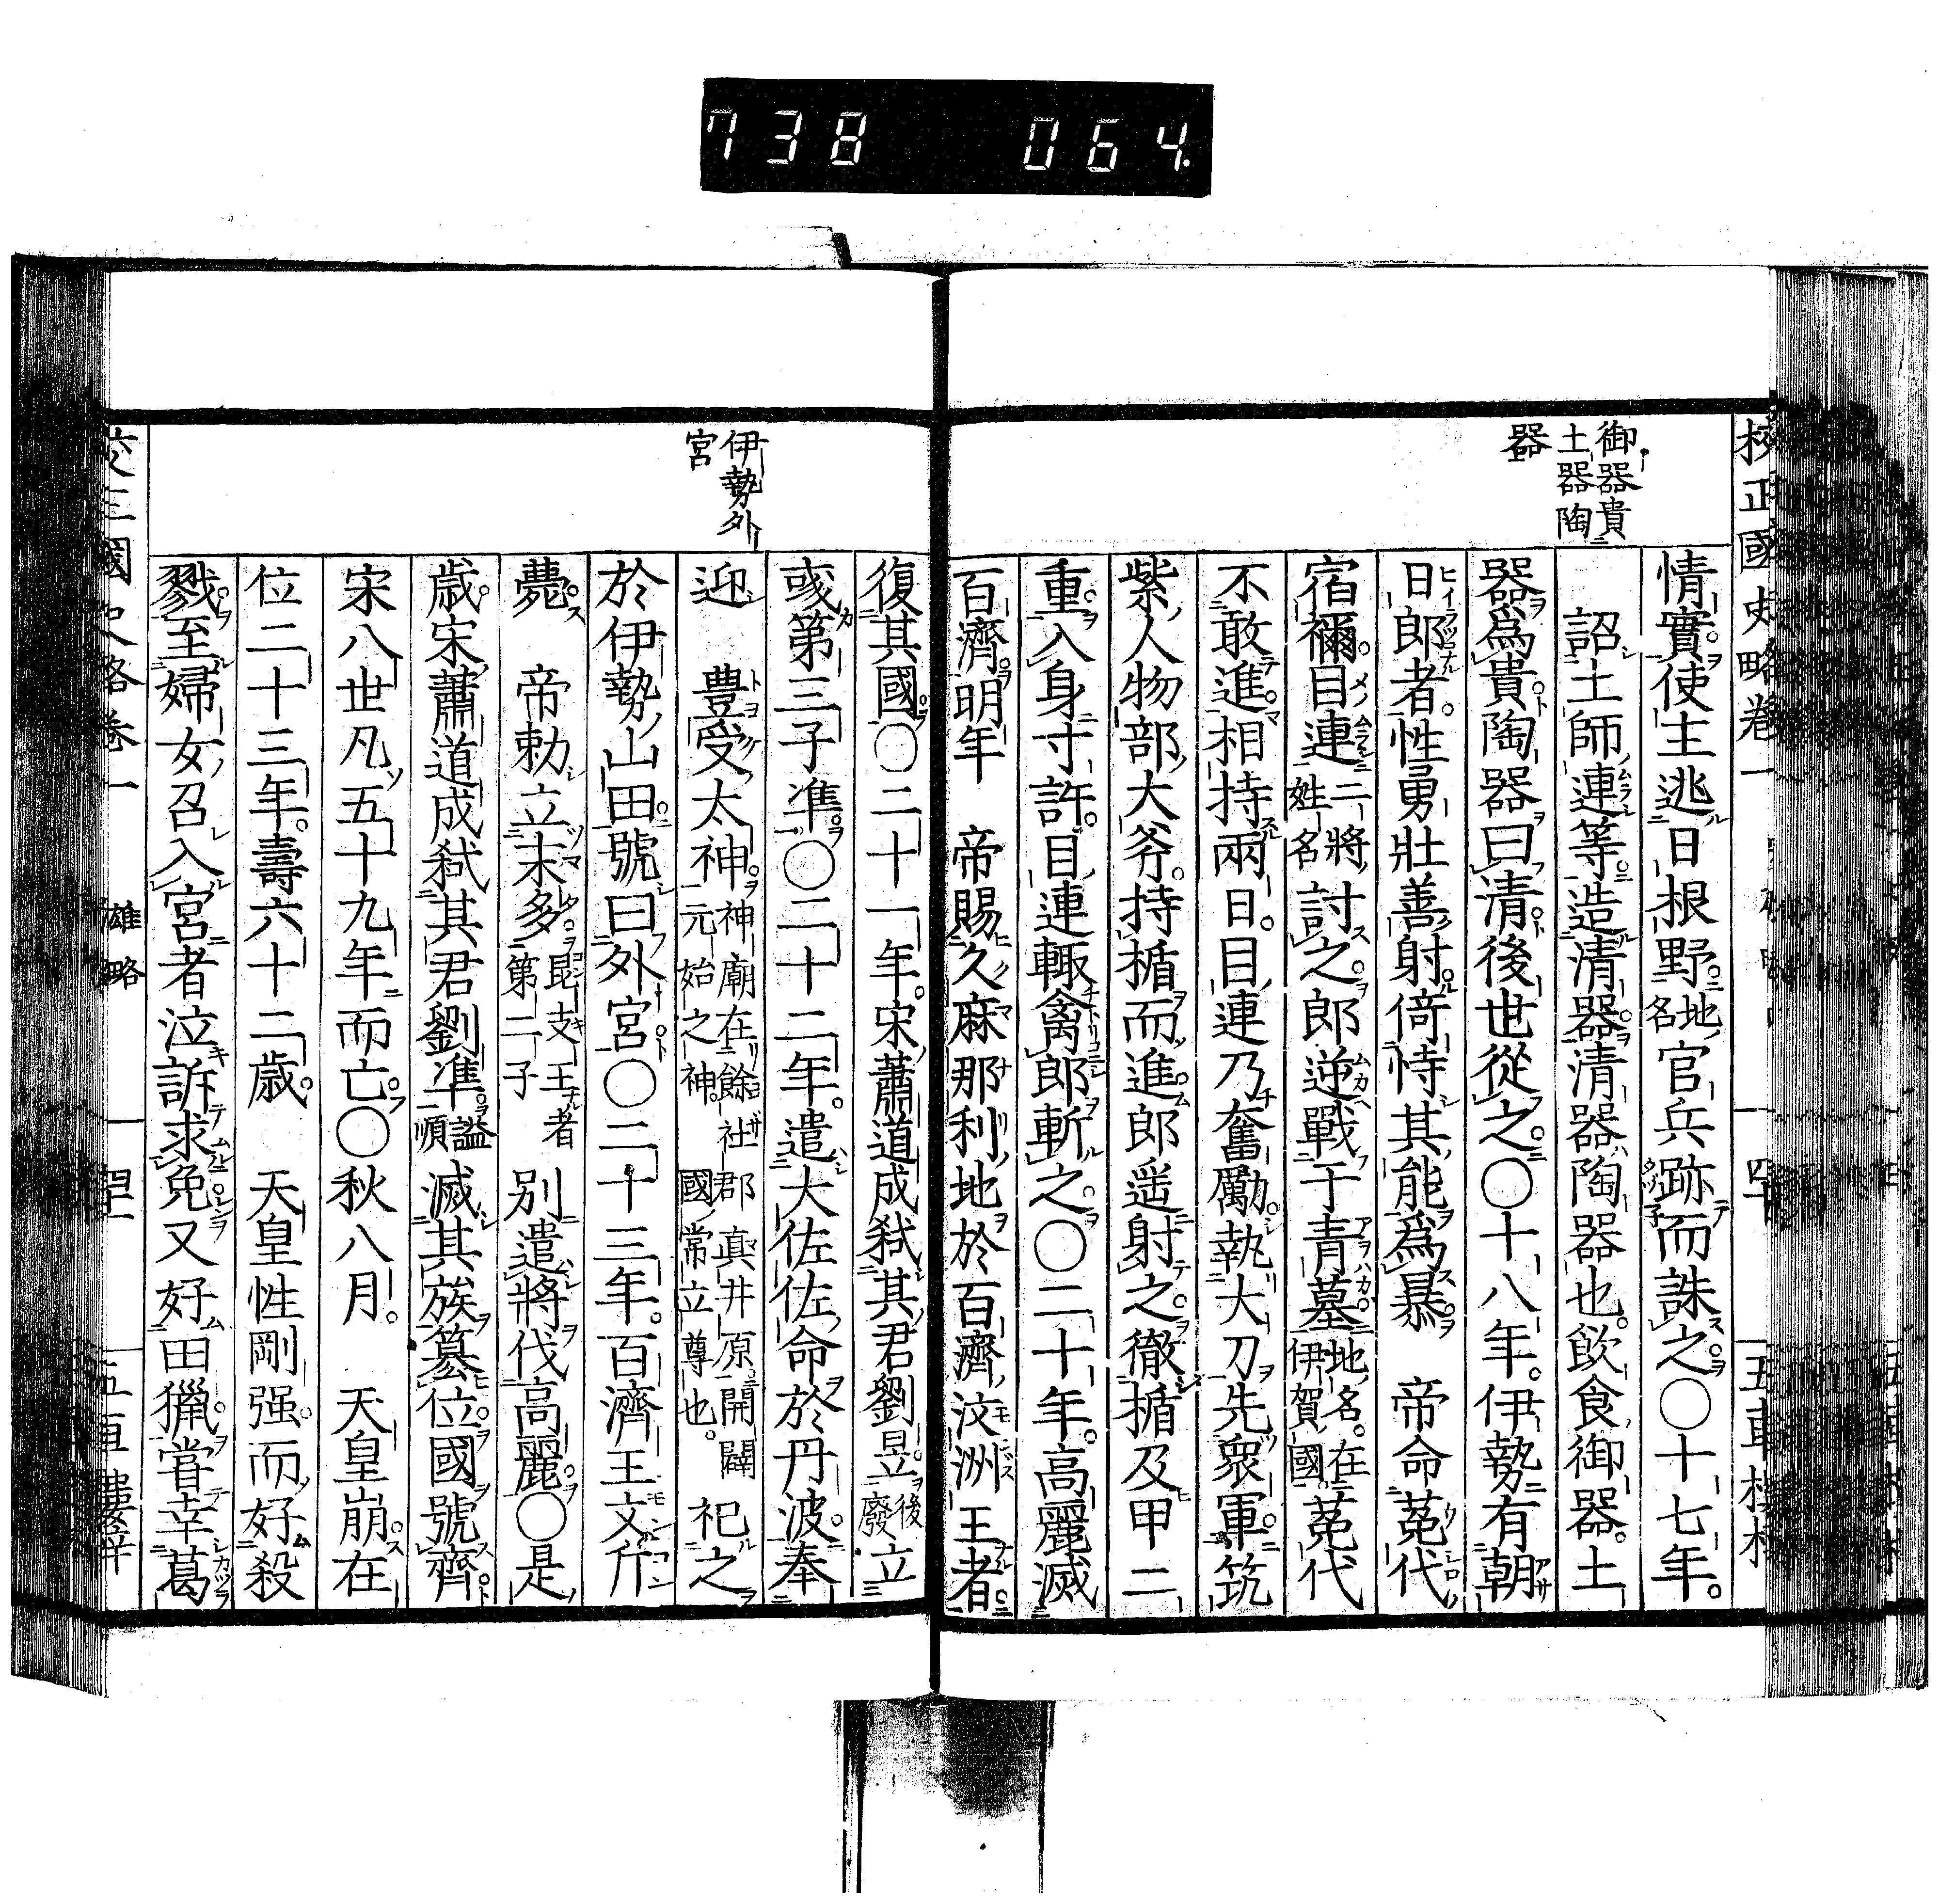 738 064
校正國史略卷一
四十
五車樓
御器貴
土器陶
器
情實使主逃日根野地名官兵跡而誅之○十七年
詔土師連等造清器清器陶器也飲食御器土
器爲貴陶器曰清後世從之○十八年伊勢有朝
日郎者性勇壯善射倚恃其能爲暴 帝命菟代
宿禰目連二將姓名討之郎逆戰于青墓地名在伊賀國菟代
不敢進相持兩日目連乃奮勵執大刀先衆軍筑
紫人物部大斧持楯而進郎遥射之徹楯及甲二
重入身寸許目連輙禽郎斬之○二十年高麗滅
百濟明年 帝賜久麻那利地於百濟汶洲王者
復其國○二十一年宋蕭道成弒其君劉昱後廢立
彧第三子準○二十二年遣大佐佐命於丹波奉
伊勢外
宮
迎 豊受太神神廟在餘社郡真井原開闢元始之神國常立尊也祀之
於伊勢山田號曰外宮○二十三年百濟王文斤
薨 帝勅立末多昆支王者第二子別遣將伐高麗○是
歲宋蕭道成弒其君劉準謚順滅其族篡位國號齊
宋八世凡五十九年而亡○秋八月 天皇崩在
位二十三年壽六十二歲 天皇性剛强而好殺
戮至婦女召入宮者泣訴求免又好田獵甞幸葛
雄略